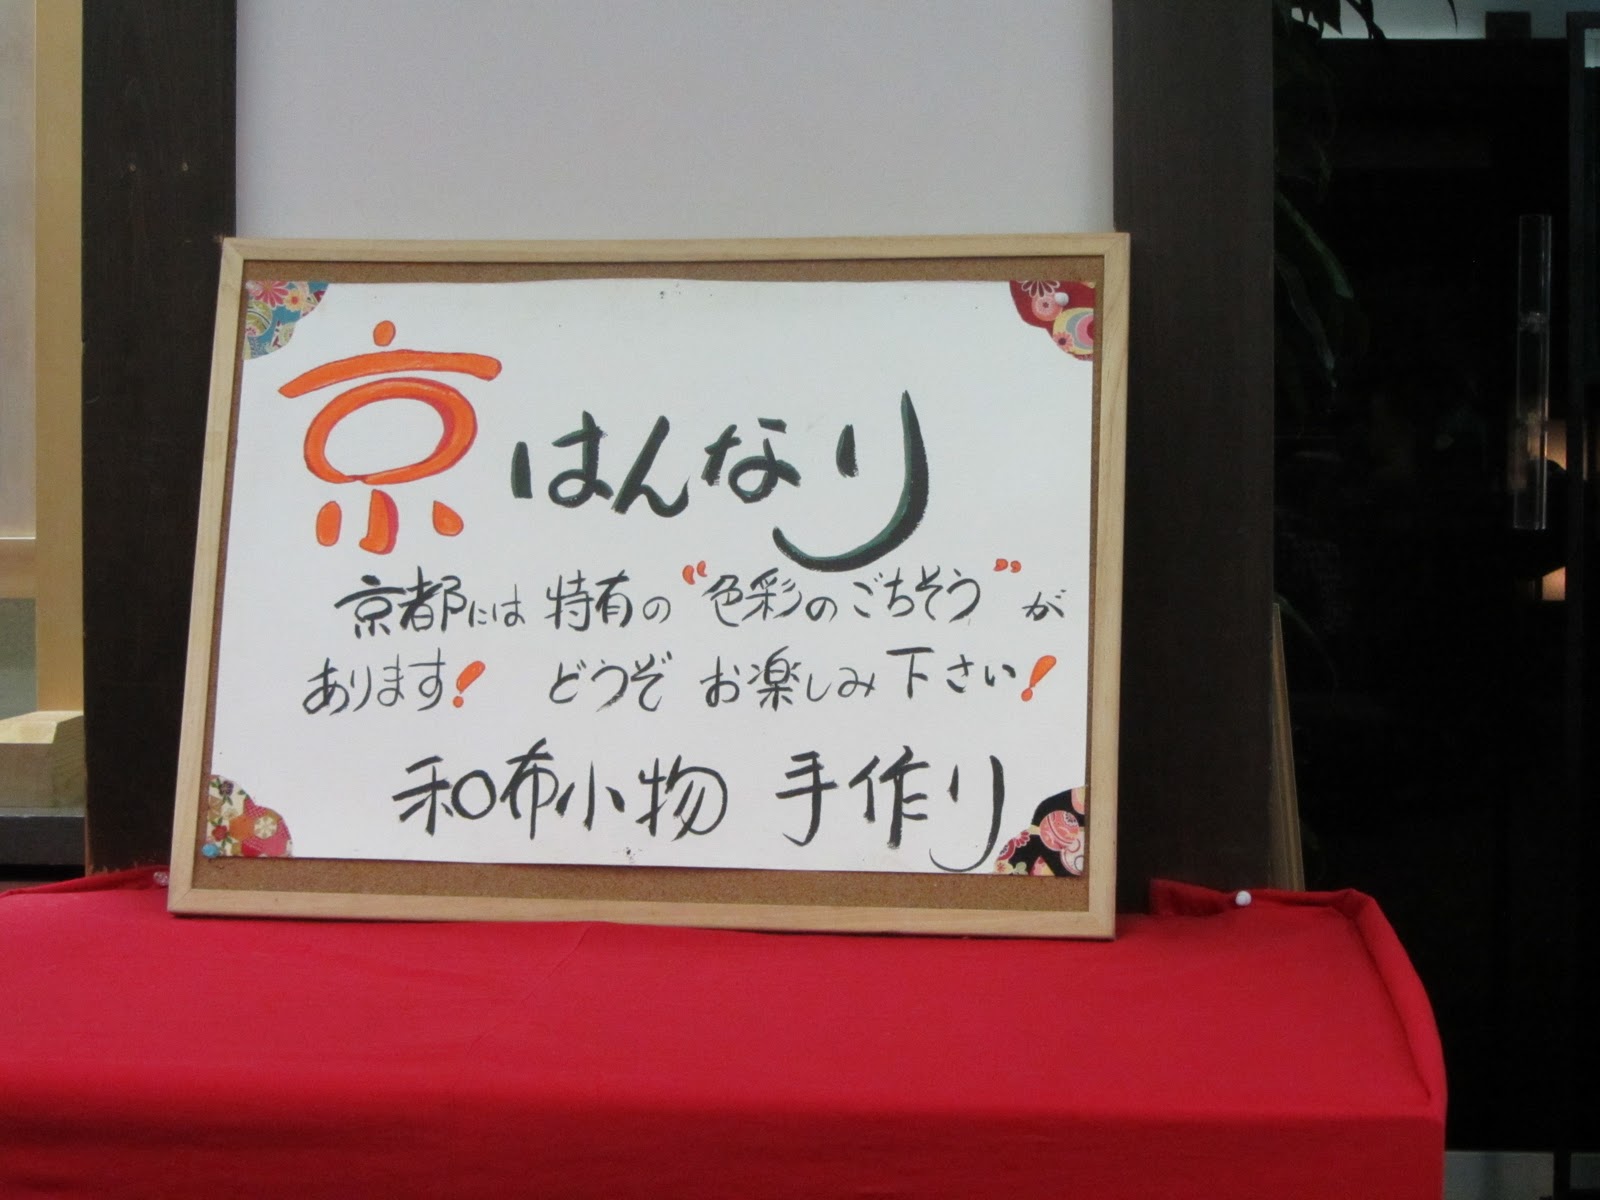 京はんなり
京都には 特有の "色彩のごちそう" が
あります! どうぞ お楽しみ下さい!
和布小物 手作り